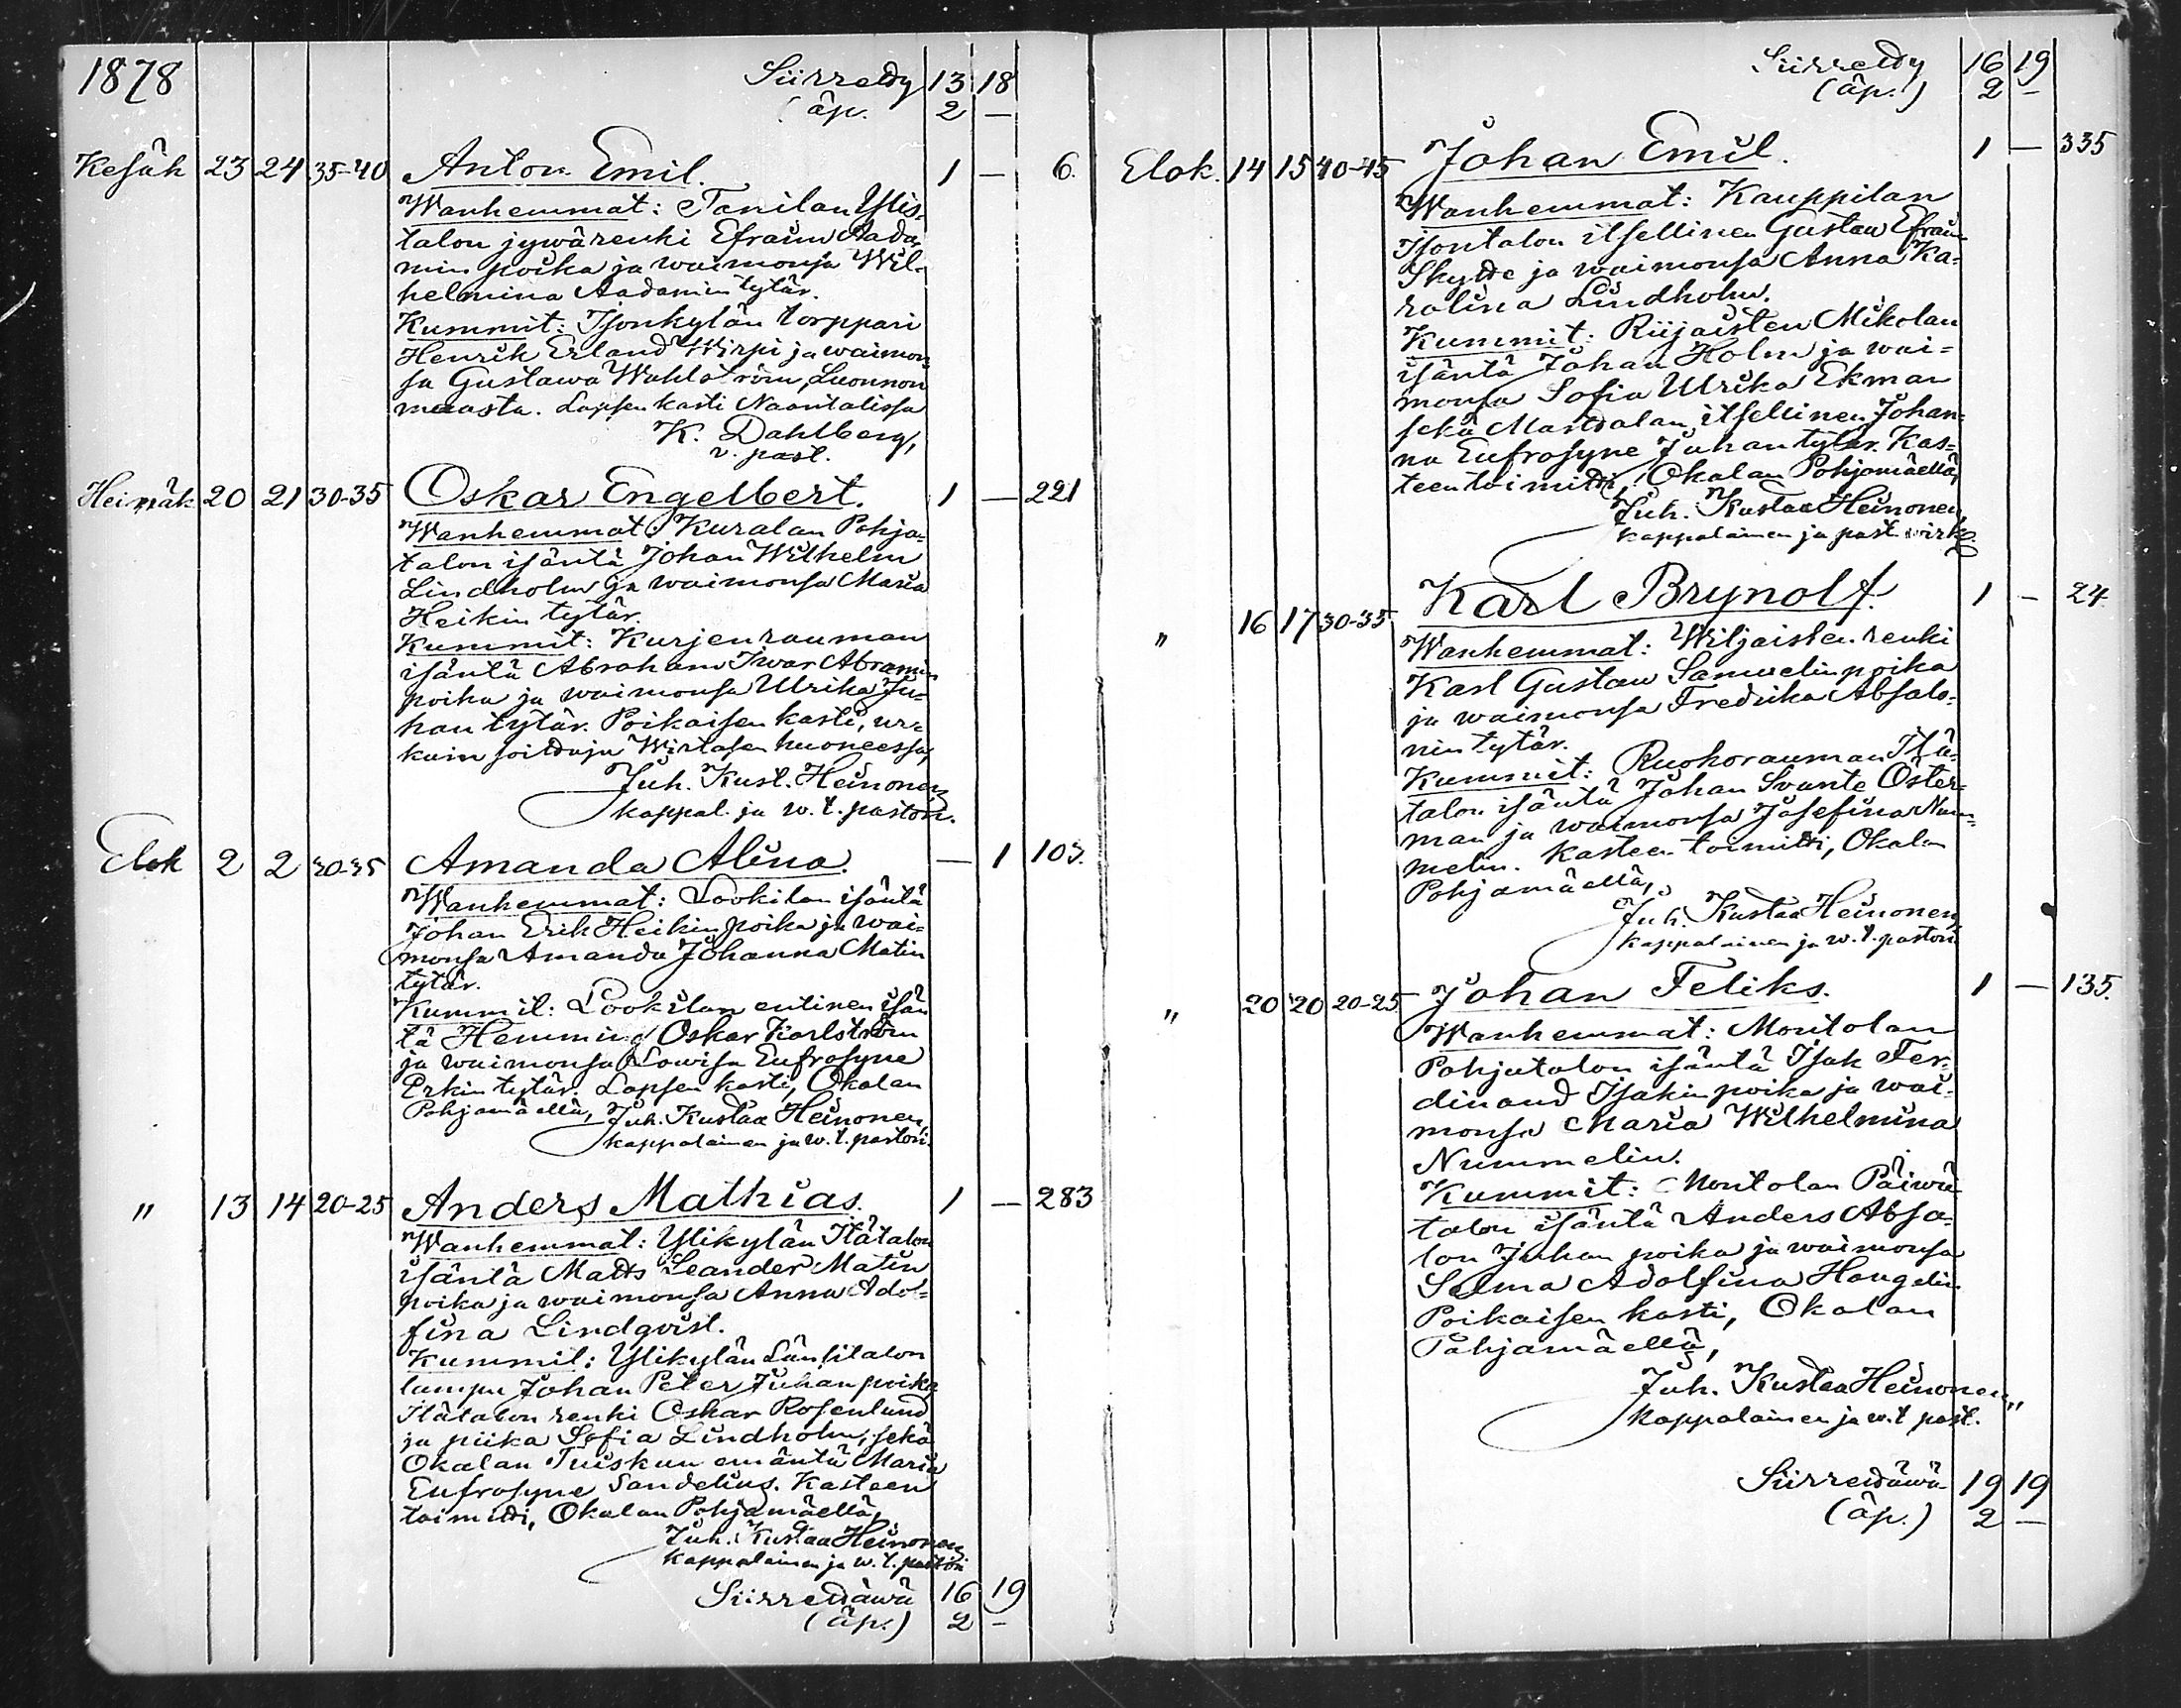 1878 Siirretty 13 18
(äp. 2 —
Kesäk 23 24 35-40 Anton Emil. 1 — 6.
Wanhemmat: Tanilan Ylis-
talon jywärenki Efraim Aada-
min poika ja waimonsa Wil-
helmina Aadamin tytär.
Kummit: Isonkylän torppari
Henrik Erland Wirpi ja waimon-
sa Gustawa Wahlström, Luonnon
maasta. Lapsen kasti Naantalissa
K. Dahlberg,
v. past.
Heinäk 20 21 30-35 Oskar Engelbert. 1 — 221
Wanhemmat: Kuralan Pohja-
talon isäntä Johan Wilhelm
Lindholm ja waimonsa Maria
Heikin tytär.
Kummit: Kurjenrauman
isäntä Abraham Iwar Abramin
poika ja waimonsa Ulrika Ju-
han tytär. Poikaisen kasti, ur-
kuin soittaja Wirtasen huoneessa,
Juh. Kust. Heinonen,
kappal. ja w. t. pastori.
Elok 2 2 30-35 Amanda Alina. — 1 103.
Wanhemmat: Lookilan isäntä
Johan Erik Heikin poika ja wai-
monsa Amanda Johanna Matin
tytär.
Kummit: Lookilan entinen isän
tä Hemming Oskar Karlström
ja waimonsa Lowisa Eufrosyne
Erkin tytär. Lapsen kasti, Okalan
Pohjamäellä, Juh. Kustaa Heinonen,
kappalainen ja w. t. pastori.
" 13 14 20-25 Anders Mathias. 1 — 283
Wanhemmat: Ylikylän Itätalon
isäntä Matts Leander Matin
poika ja waimonsa Anna Adol-
fina Lindqvist.
Kummit: Ylikylän Länsitalon
lampu Johan Peter Juhan poika
Itätalon renki Oskar Rosenlund
ja piika Sofia Lindholm, sekä
Okalan Tuiskun emäntä Maria
Eufrosyne Sandelius. Kasteen
toimitti, Okalan Pohjamäellä,
Juh. Kustaa Heinonen,
kappalainen ja w. t. pastori
Siirrettäwä 16 19
(äp.) 2 —
Siirretty 16 19
(äp.) 2 —
Elok. 14 15 40-45 Johan Emil. 1 — 335
Wanhemmat: Kauppilan
Isontalon itsellinen Gustaw Efraim
Skytte ja waimonsa Anna Ka-
rolina Lindholm.
Kummit: Riijaisten Mikolan
isäntä Johan Holm ja wai-
monsa Sofia Ulrika Ekman
sekä Marttalan itsellinen Johan-
na Eufrosyne Juhan tytär. Kas-
teen toimitti, Okalan Pohjamäellä,
Juh. Kustaa Heinonen,
kappalainen ja past. wirk.
" 16 17 30-35 Karl Brynolf. 1 — 24.
Wanhemmat: Wiljaisten renki
Karl Gustaw Samuelin poika
ja waimonsa Fredrika Absalo-
nin tytär.
Kummit: Ruokorauman Itä-
talon isäntä Johan Svante Öster-
man ja waimonsa Josefina Num-
melin. Kasteen toimitti, Okalan
Pohjamäellä,
Juh. Kustaa Heinonen,
kappalainen ja w. t. pastori
" 20 20 20-25. Johan Feliks. 1 — 135.
Wanhemmat: Montolan
Pohjatalon isäntä Isak Fer-
dinand Isakin poika ja wai-
monsa Maria Wilhelmina
Nummelin.
Kummit: Montolan Päiwä-
talon isäntä Anders Absa-
lon Juhan poika ja waimonsa
Selma Adolfina Hongelin.
Poikaisen kasti, Okalan
Pohjamäellä,
Juh. Kustaa Heinonen,
kappalainen ja w. t past.
Siirrettäwä 19 19
(äp.) 2 —